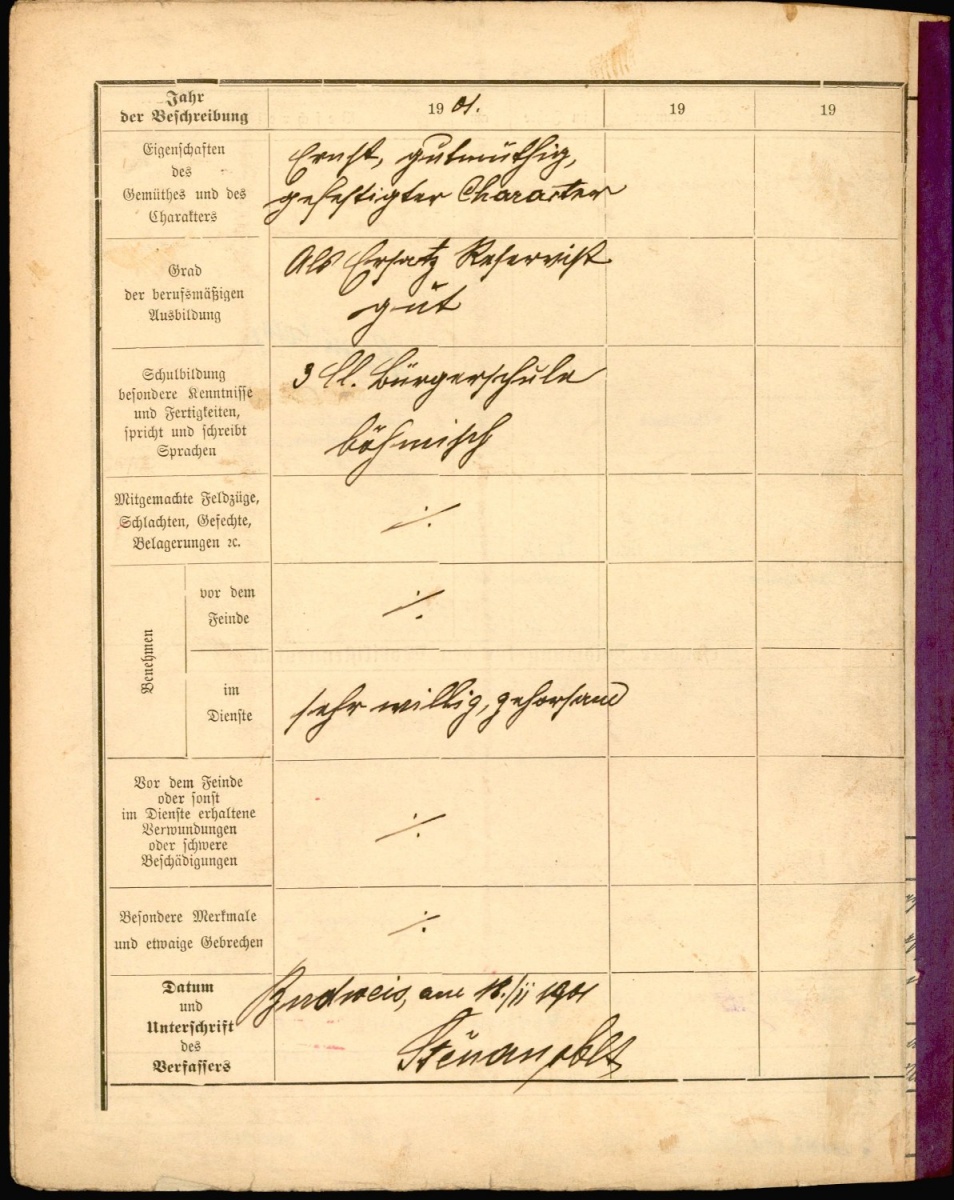 Jahr
der Beschreibung
19 01.
19
19
Eigenschaften
des
Gemüthes und des
Charakters
Ernst, gutmüthig,
gefestigter Character
Grad
der berufsmäßigen
Ausbildung
Als Ersatz Reservist
gut
Schulbildung
besondere Kenntnisse
und Fertigkeiten,
spricht und schreibt
Sprachen
3 Cl. Bürgerschule
böhmisch
Mitgemachte Feldzüge,
Schlachten, Gefechte,
Belagerungen ꝛc.
./.
Benehmen
vor dem
Feinde
./.
im
Dienste
sehr willig, gehorsam
Vor dem Feinde
oder sonst
im Dienste erhaltene
Verwundungen
oder schwere
Beschädigungen
./.
Besondere Merkmale
und etwaige Gebrechen
./.
Datum
und
Unterschrift
des
Verfassers
Budweis, am /11 1901
Oblt